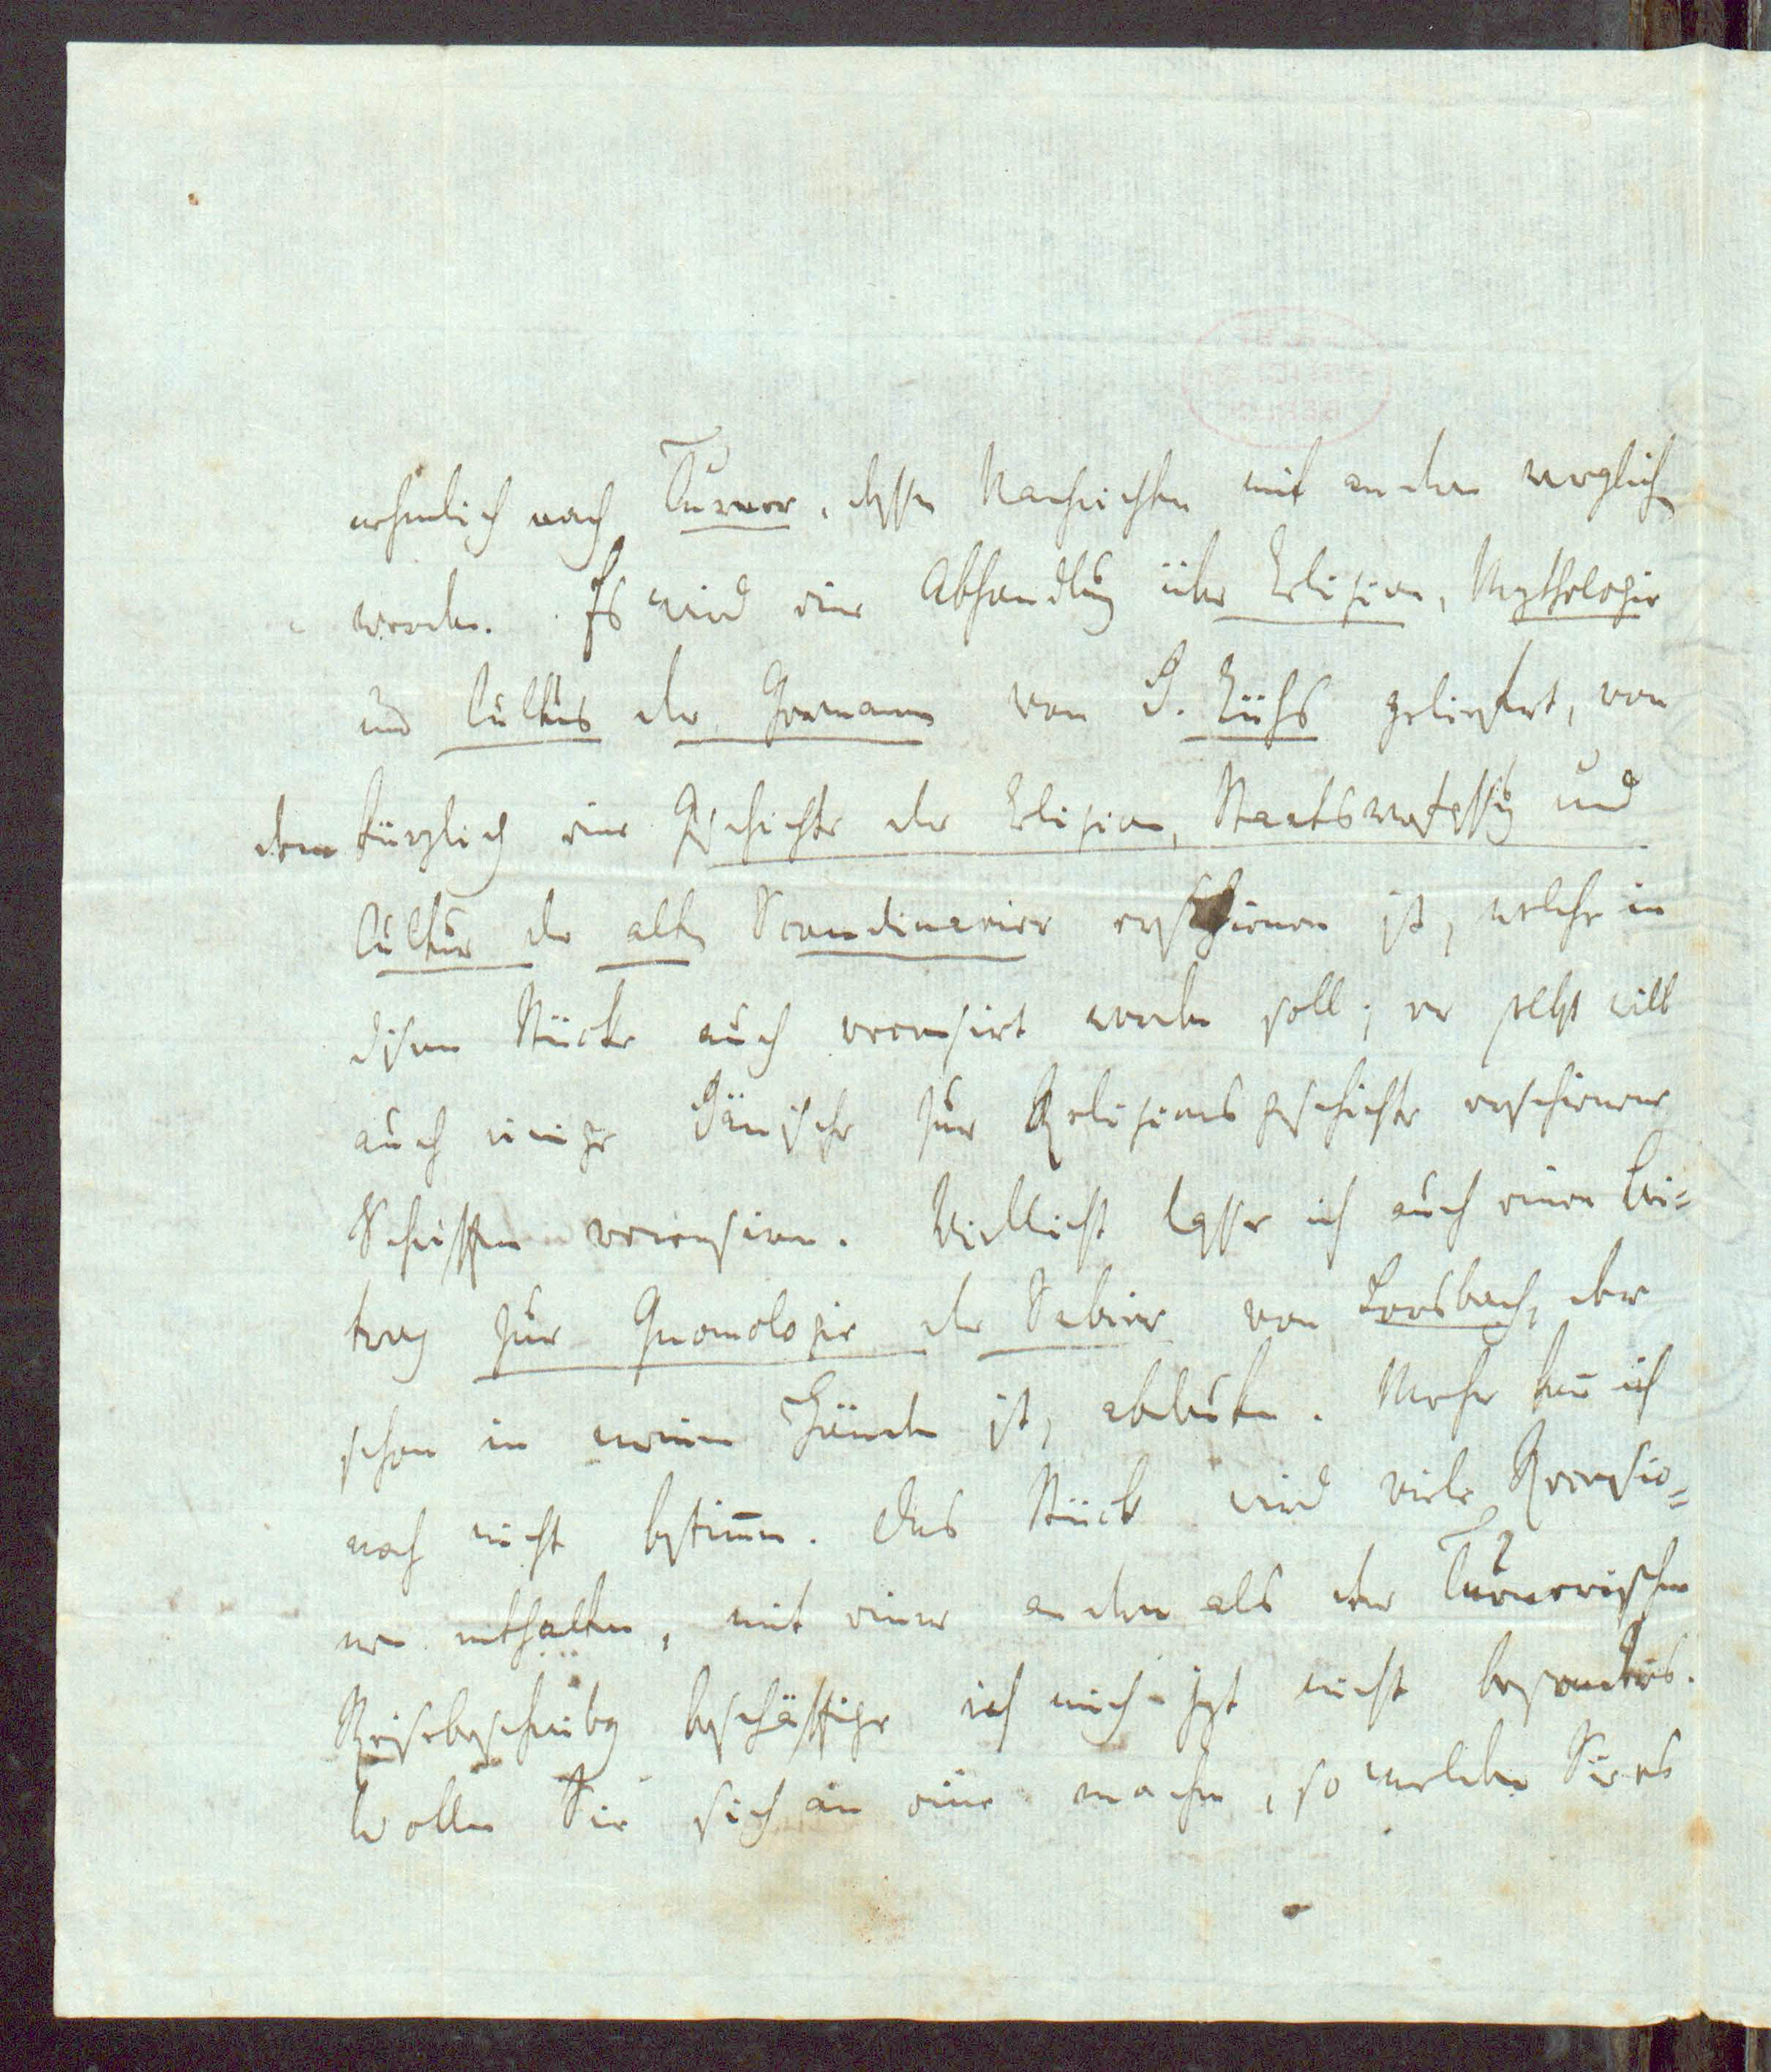 nehmlich nach Turner, dessen Nachrichten mit andern verglichen
werden. Es wird eine Abhandlung über Religion, Mythologie
und Cultus der Germanen von D. Rühs geliefert, von
dem kürzlich eine Geschichte der Religion, Staatsverfassung und
Cultur der alten Scandinavier erschienen ist, welche in
diesem Stücke auch recensirt werden soll; er selbst will
auch einige Dänische zur Religionsgeschichte erschienene
Schriften recensiren. Vielleicht lasse ich auch einen Bei=
trag zur Gnomologie der Sabier von Lorsbach, der
schon in meinen Händen ist, abdrucken. Mehr kann ich
noch nicht bestimmen. Das Stück wird viele Recensio=
nen enthalten, mit einer andern als der Turnerischen
Reisebeschreibung beschäftige ich mich jezt nicht besonders.
Wollen Sie sich an eine machen, so melden Sie es